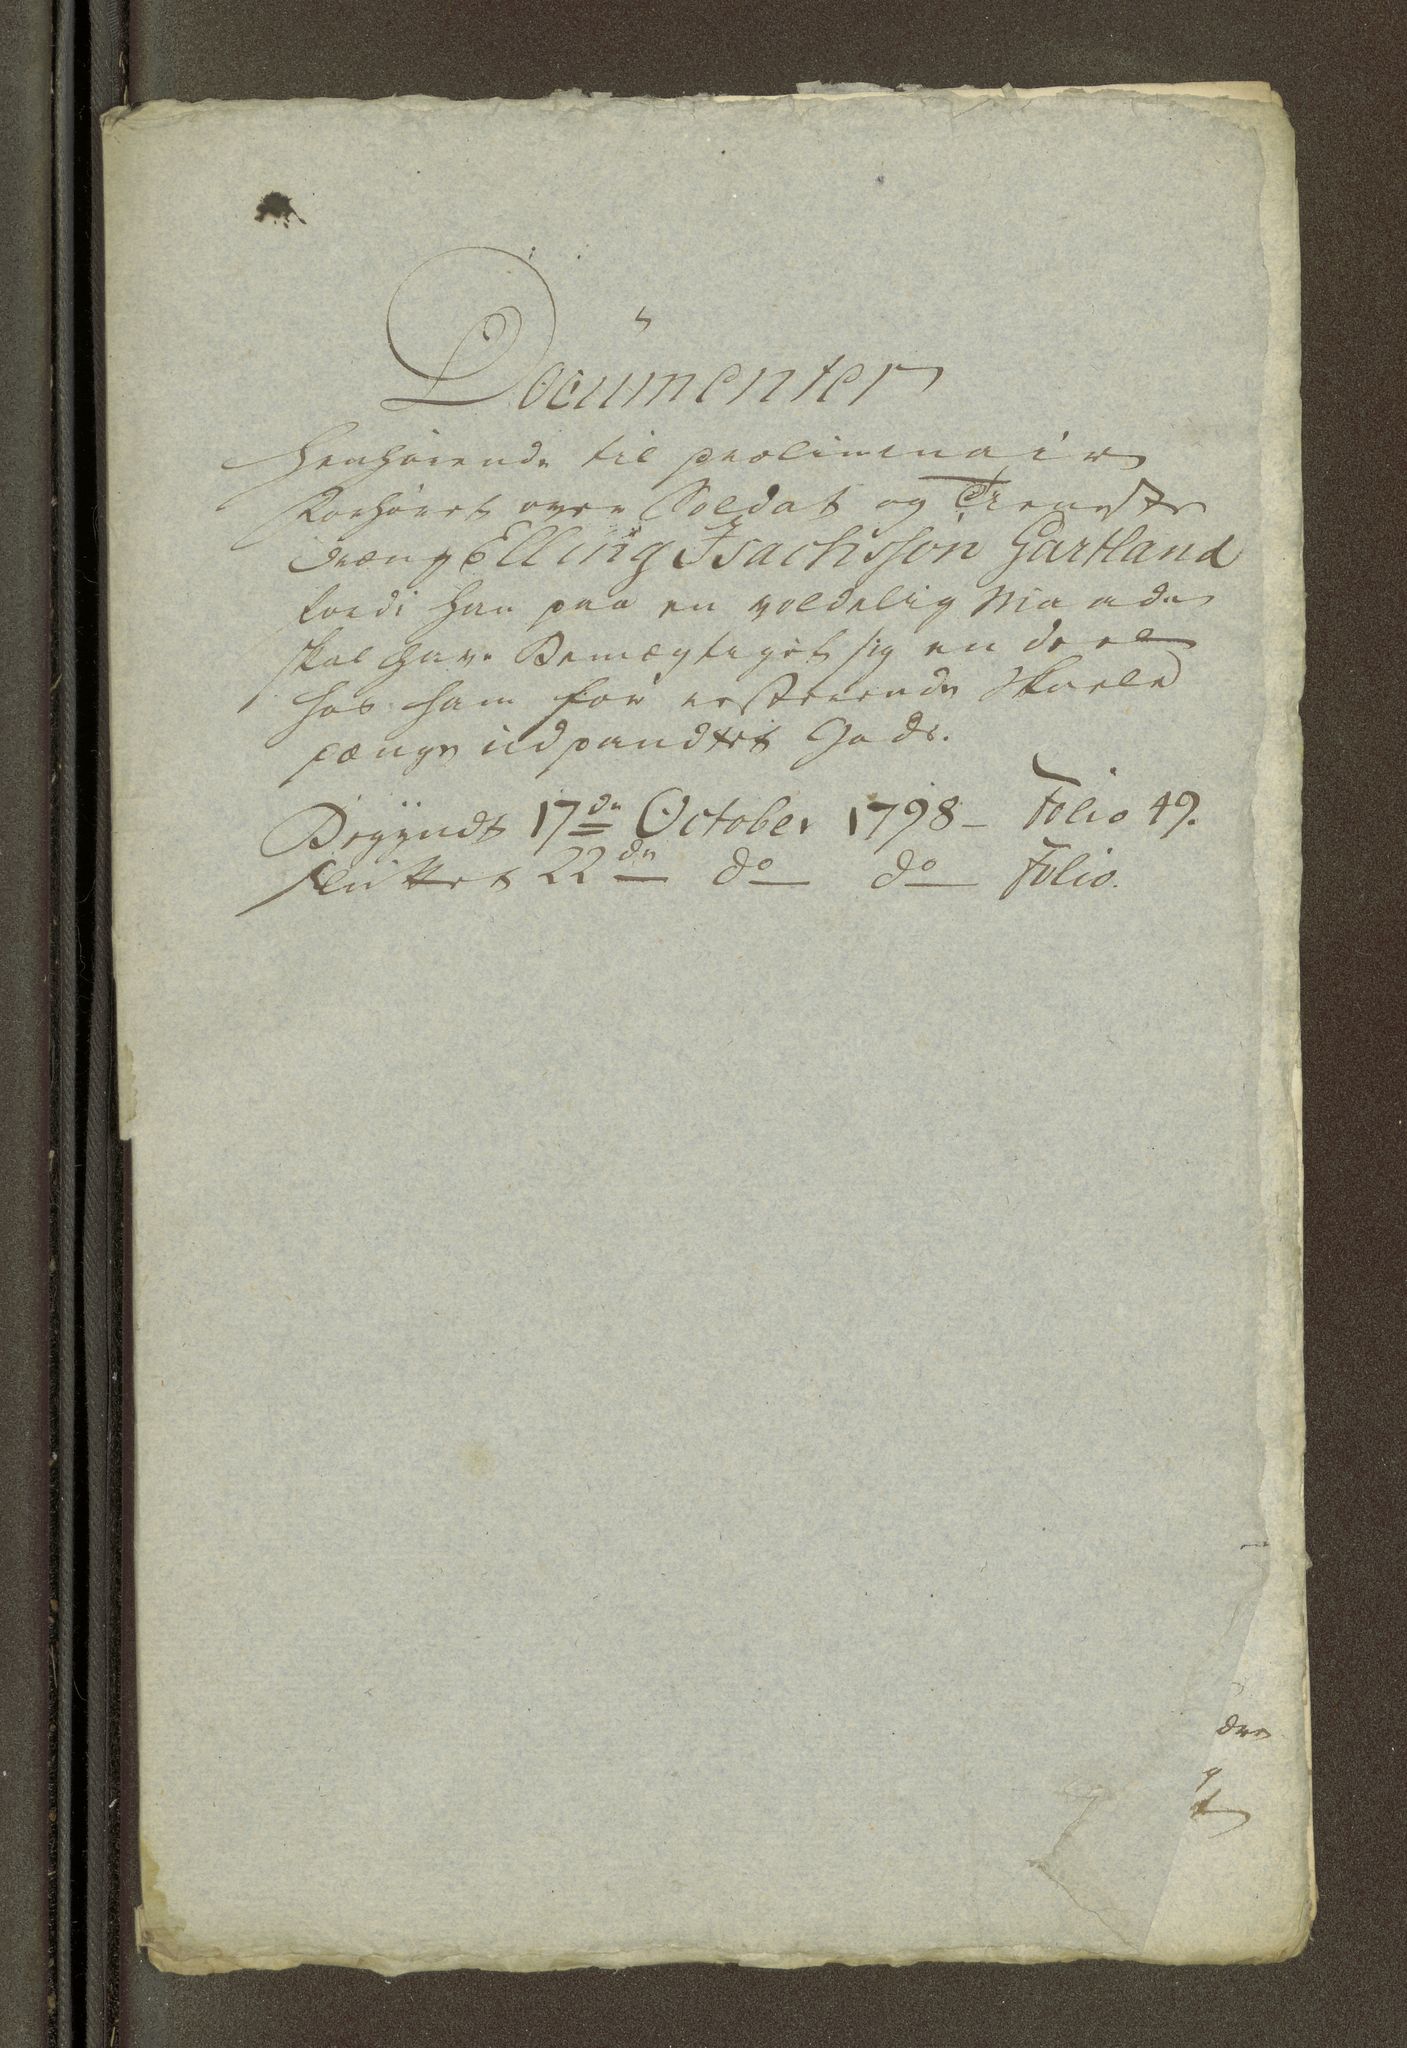 Documenter
Henhørende til prœliminair
Forhøret over Soldat og Tieneste
dræng Elling Isachsson Gartland
fordi han paa en voldelig Maade
skal have Bemægtiget sig en deel
hos ham for resterende Skoele
pænge udpandtet Gods.
Begyndt 17de October 1798 – Folio 49.
sluttet 22de do do Folio.
den
g
t